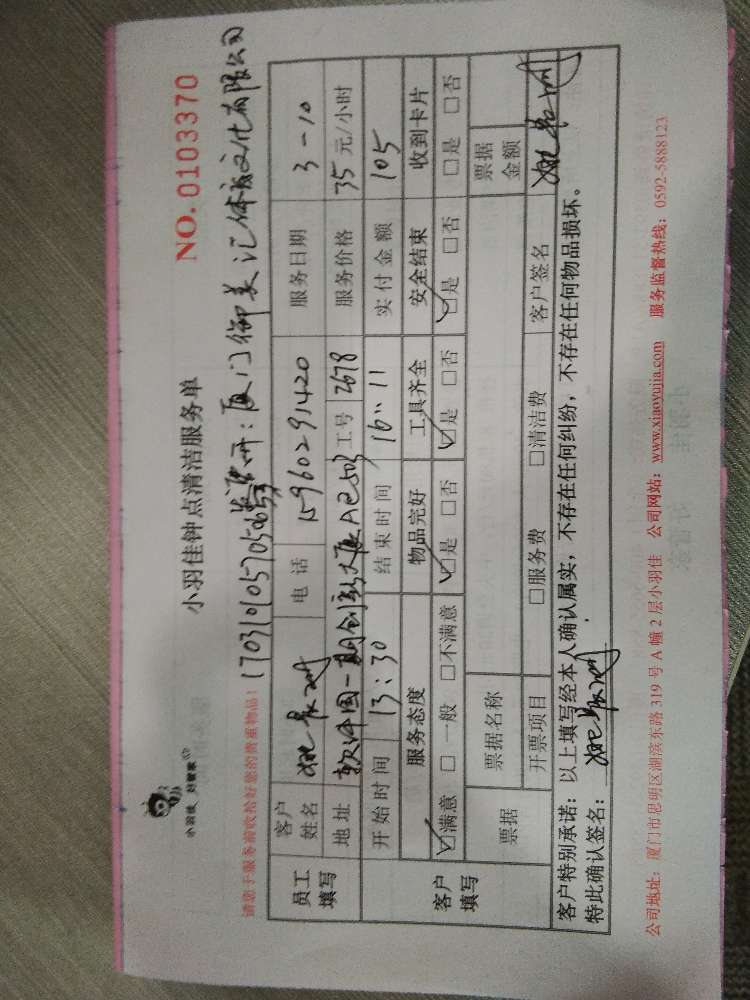 小羽佳 好管家
小羽佳钟点清洁服务单
NO. 0103370
请您于服务前收拾好您的贵重物品!
厦门御美汇体育文化有限公司
员工填写
客户姓名
电话 15960291420
服务日期 3-10
地址 软件园一期创新大厦A区503
工号 2678
服务价格 35元/小时
客户填写
开始时间 13:30
结束时间 16:11
实付金额 105
服务态度 物品完好 工具齐全 安全结束 收到卡片
☑满意 □一般 □不满意 ☑是 □否 ☑是 □否 ☑是 □否 □是 □否
票据
票据名称
票据金额
开票项目 □服务费 □清洁费
客户签名
客户特别承诺:以上填写经本人确认属实,不存在任何纠纷,不存在任何物品损坏。
特此确认签名:
公司地址:厦门市思明区湖滨东路 319 号 A 幢 2 层小羽佳 公司网站:www.xiaoyujia.com 服务监督热线:0592-5888123